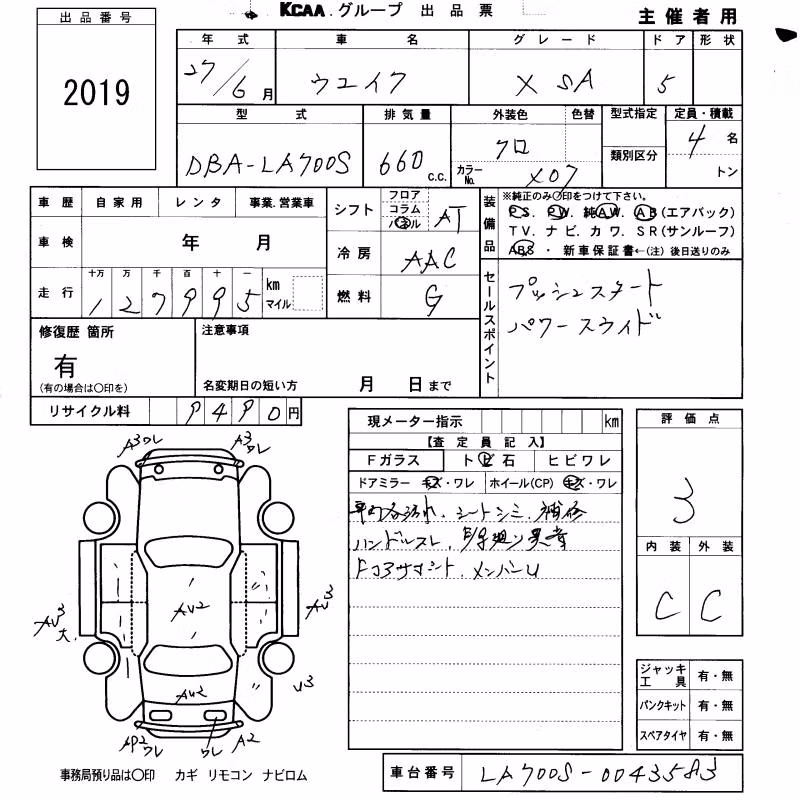 KCAA.グループ 出品票
主催者用
出品番号
2019
年式 車名 グレード ドア 形状
27/6月 ウエイク X SA 5
型式 排気量 外装色 色替 型式指定 定員・積載
類別区分
DBA-LA700S 660 c.c. クロ 4名
カラーNo. X07 トン
車歴 自家用 レンタ 事業.営業車
シフト フロア コラム パネル AT
車検 年 月
冷房 AAC
走行 十万 万 千 百 十 一
127995 km マイル
燃料 G
装備品 ※純正のみ〇印をつけて下さい。
PS. PW. 純AW. AB(エアバック)
TV. ナビ. カワ. SR(サンルーフ)
ABS ・ 新車保証書←(注) 後日送りのみ
セールスポイント
プッシュスタート
パワースライド
修復歴 箇所
有
(有の場合は〇印を)
注意事項
名変期日の短い方 月 日まで
リサイクル料 9490円
現メーター指示 km
【査定員記入】
Fガラス ト石 ヒビワレ
ドアミラー キズ・ワレ ホイール(CP) キズ・ワレ
シートシミ. 補修
ハンドルスレ.
メンバーU
評価点
3
内装 外装
C C
A3ワレ A3ワレ
AU2
AU3 大. AU3
AU2 U3
AP2ワレ ワレ A2
ジャッキ工具 有・無
パンクキット 有・無
スペアタイヤ 有・無
事務局預り品は〇印 カギ リモコン ナビロム
車台番号 LA700S-0043583